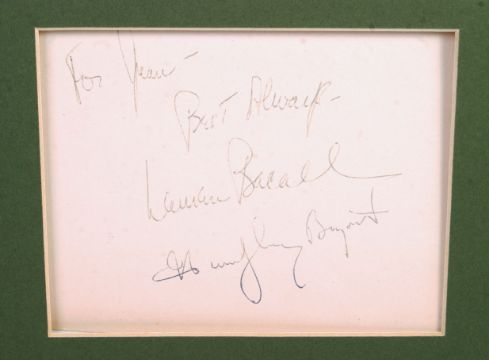 For
Best Always -
Lauren Bacall
Humphrey Bogart